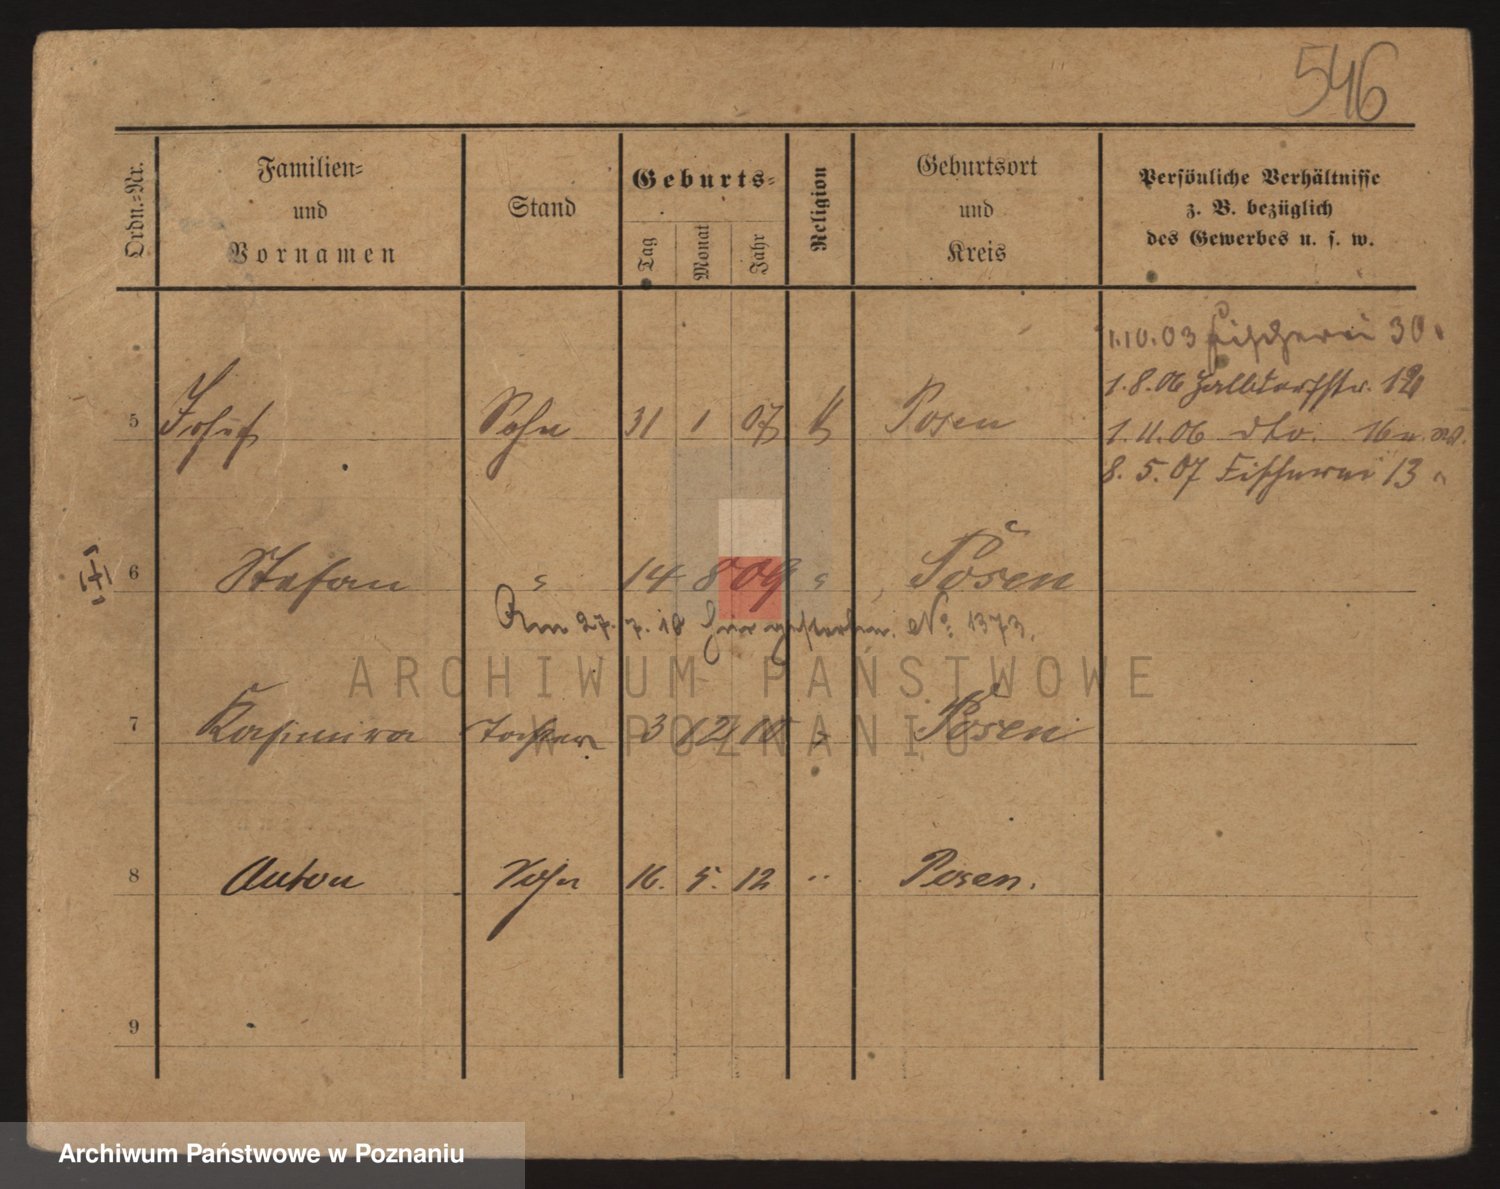 546
Ordn.-Nr.
Familien-
und
Vornamen
Stand
Geburts-
Tag
Monat
Jahr
Religion
Geburtsort
und
Kreis
Persönliche Verhältnisse
z. B. bezüglich
des Gewerbes u. s. w.
1.10.03 Fischerei 30
1.8.06 Halbdorfstr. 12
1.11.06 dto. 16
8.5.07 Fischerei 13
5 Josef Sohn 31 1 07 k Posen
6 Stefan " 14 8 09 " Posen
Am 27.7.18 hier gestorben. No. 1373.
7 Kasimira Tochter 3 12 10 " Posen
8 Anton Sohn 16. 5. 12 " Posen.
9
ARCHIWUM PAŃSTWOWE
W POZNANIU
Archiwum Państwowe w Poznaniu